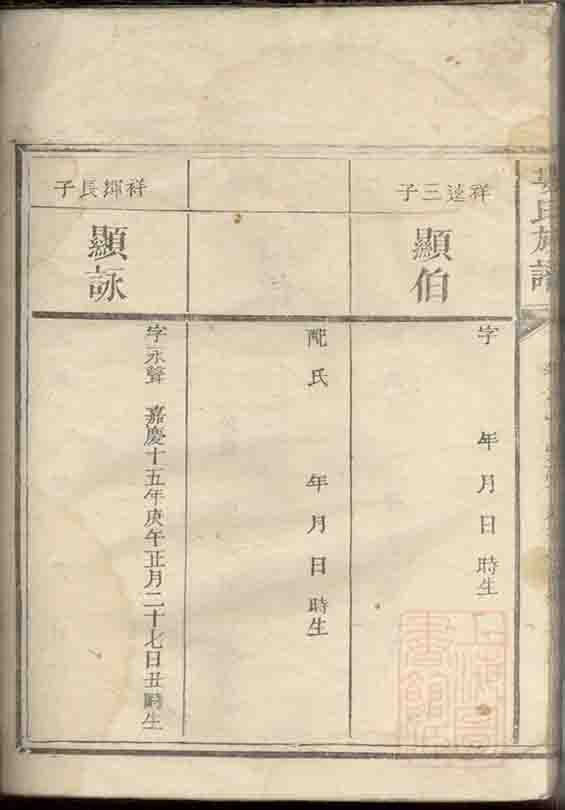 氏族譜
祥逵三子
顯伯
字 年月日時生
配氏 年月日時生
祥輝長子
顯詠
字永聲 嘉慶十五年庚午正月二十七日丑時生
上海圖書館藏